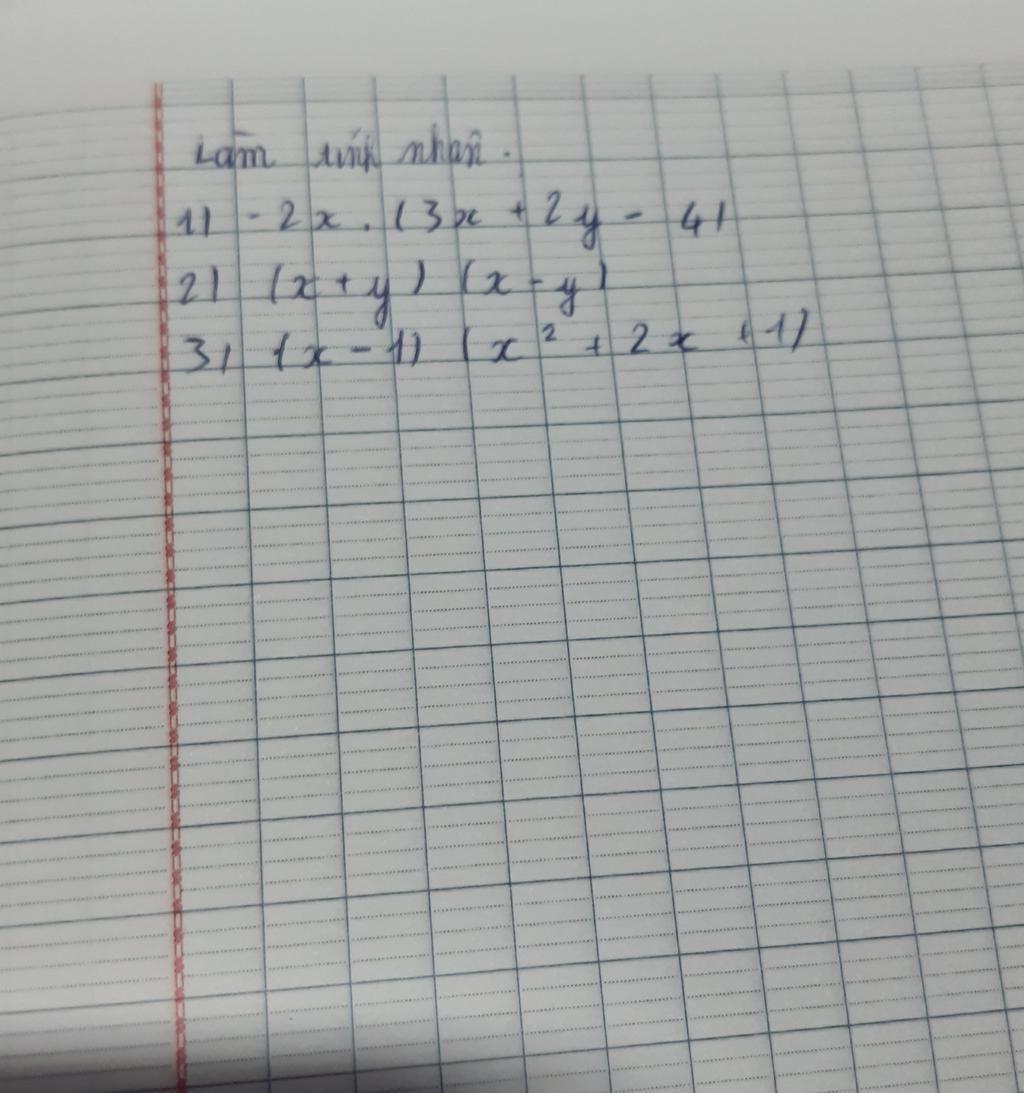 Làm tính nhân.
1) - 2x . (3x + 2y - 4)
2) (x + y) (x - y)
3) (x - 1) (x² + 2x + 1)